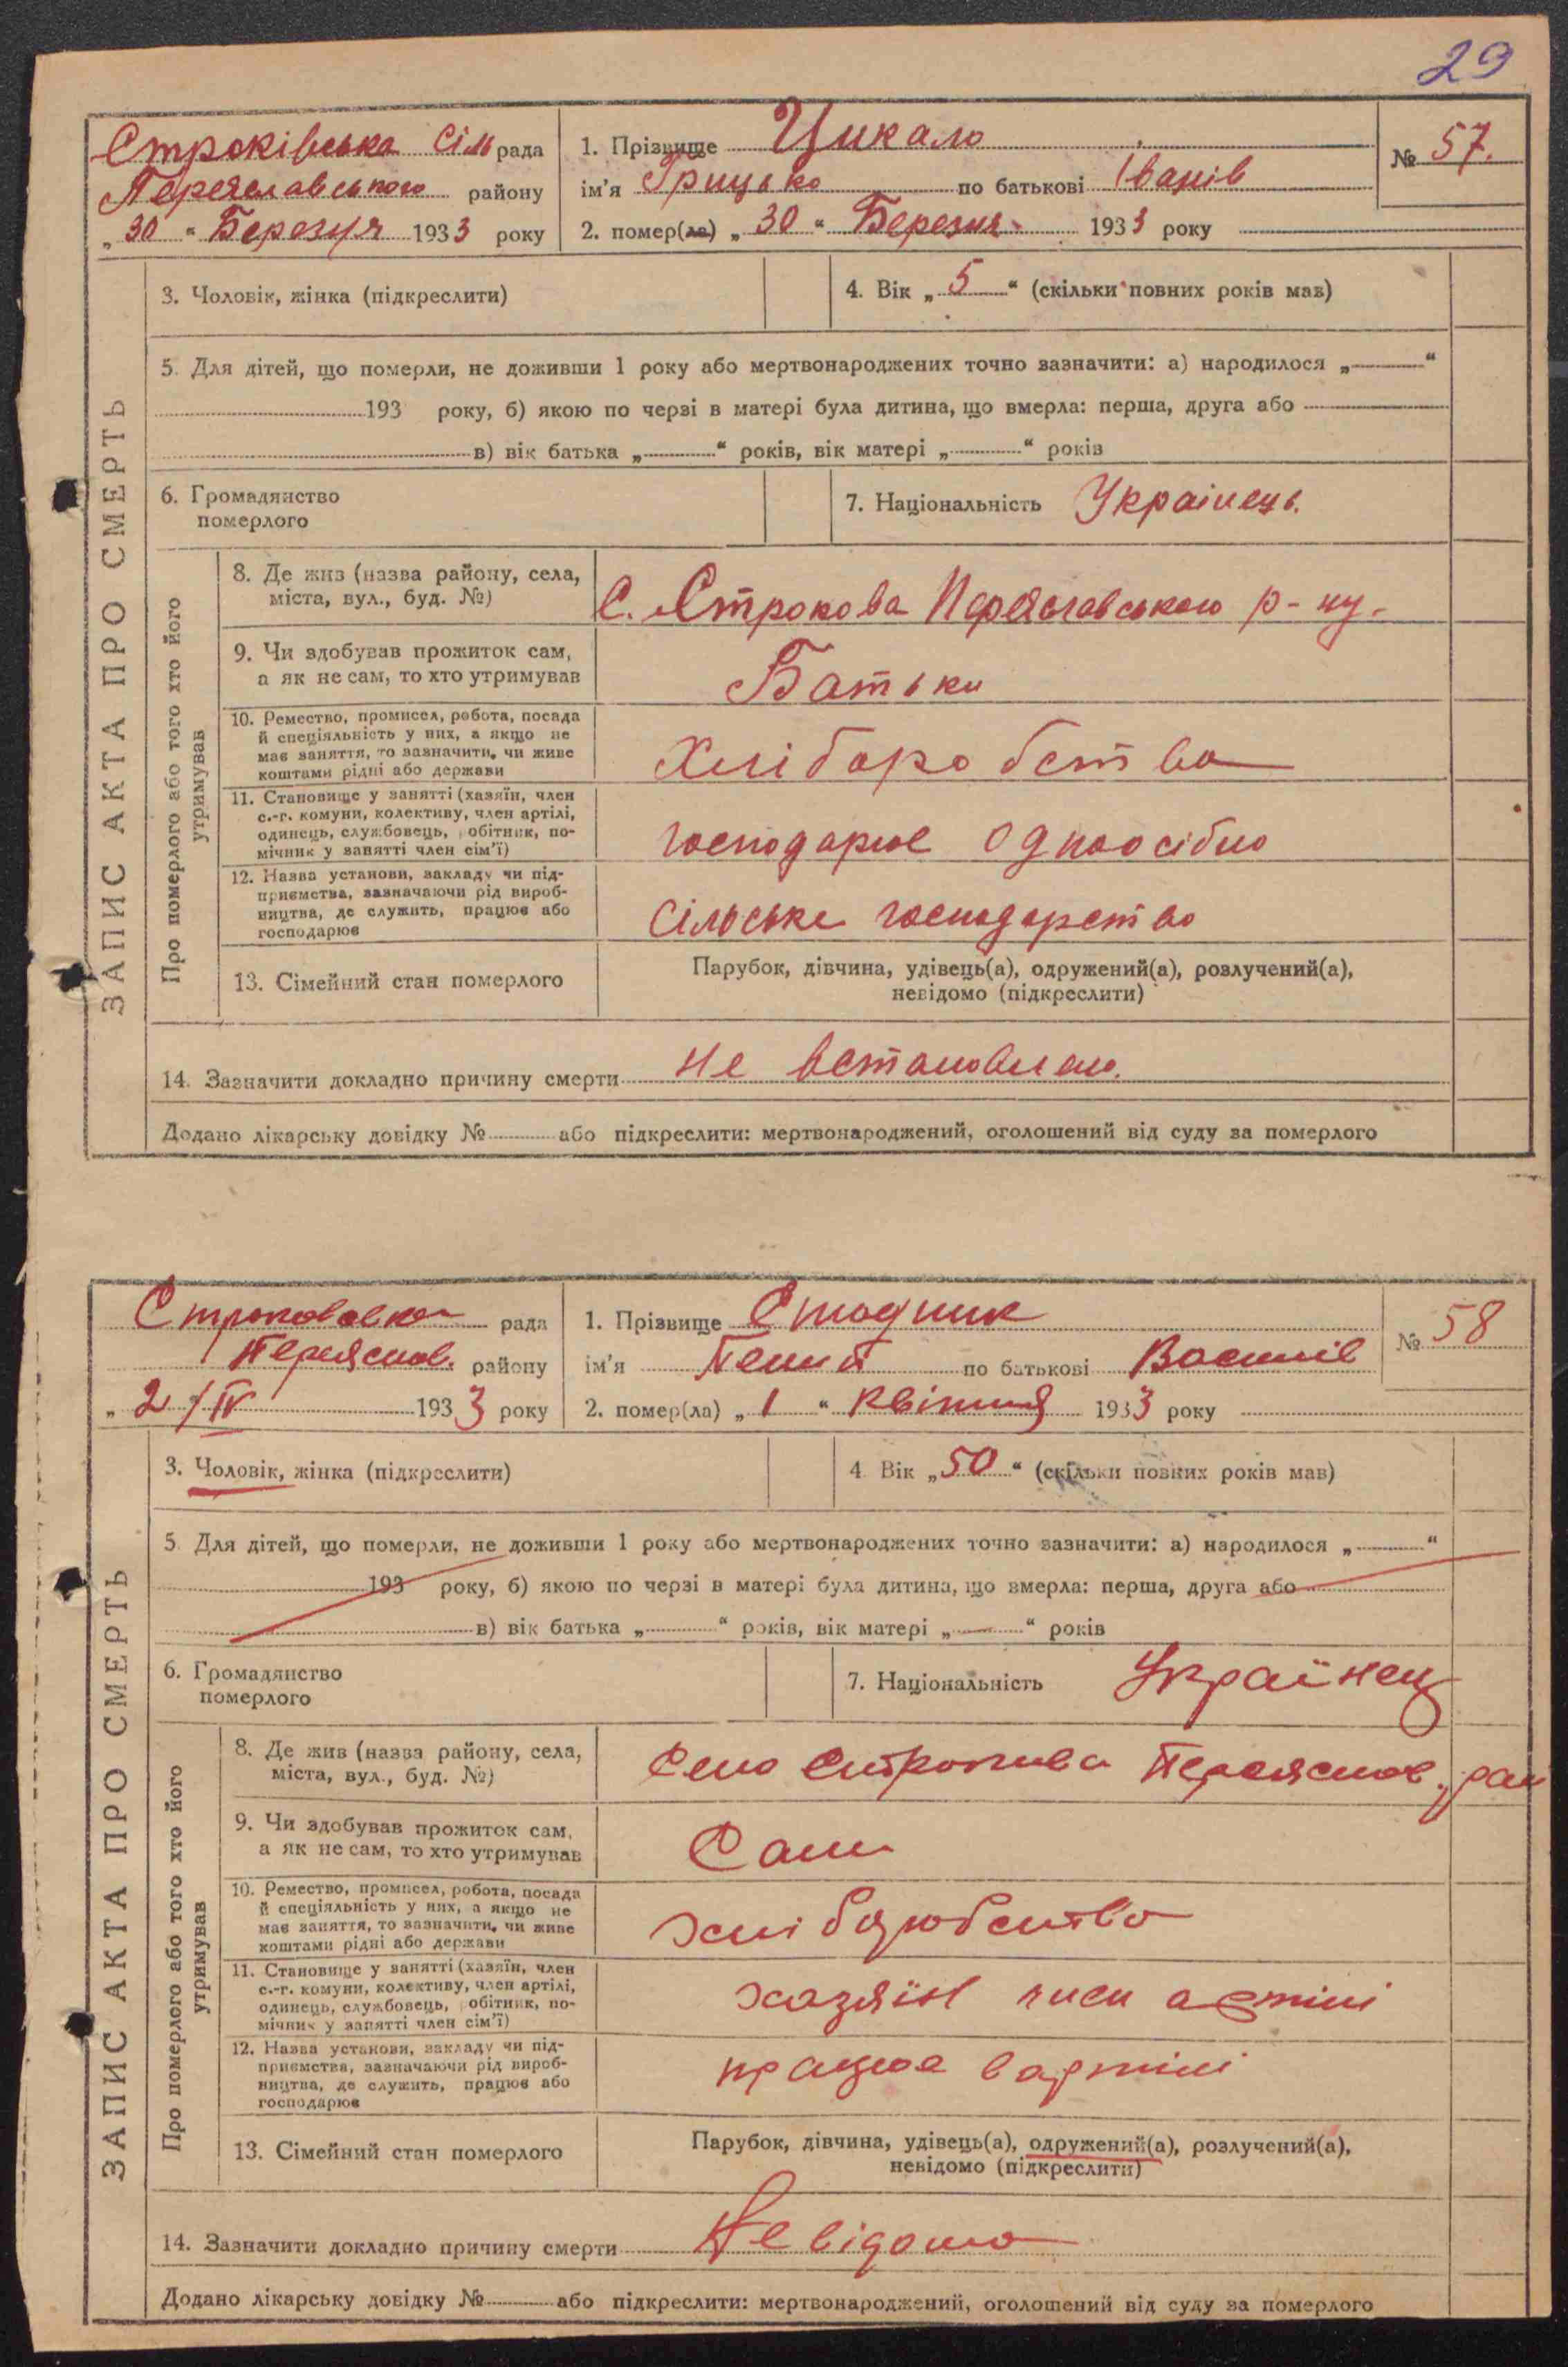 29
Строківська Сіль рада
Переяславського району
„ 30 “ Березня 1933 року
1. Прізвище Цикало
ім'я Грицько по батькові Іванів
2. помер(ла) „ 30 “ Березня 1933 року
№ 57.
3. Чоловік, жінка (підкреслити)
4. Вік „ 5 “ (скільки повних років мав)
5. Для дітей, що померли, не доживши 1 року або мертвонароджених точно зазначити: а) народилося „ “
193 року, б) якою по черзі в матері була дитина, що вмерла: перша, друга або
в) вік батька „ “ років, вік матері „ “ років
6. Громадянство
померлого
7. Національність Українець.
ЗАПИС АКТА ПРО СМЕРТЬ
Про померлого або того хто його
утримував
8. Де жив (назва району, села,
міста, вул., буд. №)
С. Строкова Переяславського р-ну.
9. Чи здобував прожиток сам,
а як не сам, то хто утримував
Батьки
10. Ремество, промисел, робота, посада
й спеціяльність у них, а якщо не
має заняття, то зазначити, чи живе
коштами рідні або держави
Хліборобства
11. Становище у занятті (хазяїн, член
с.-г. комуни, колективу, член артілі,
одинець, службовець, робітник, по-
мічник у занятті член сім'ї)
господарює одноосібно
12. Назва установи, закладу чи під-
приємства, зазначаючи рід вироб-
ництва, де служить, працює або
господарює
сільське господарство
13. Сімейний стан померлого
Парубок, дівчина, удівець(а), одружений(а), розлучений(а),
невідомо (підкреслити)
14. Зазначити докладно причину смерти не встановлено.
Додано лікарську довідку № або підкреслити: мертвонароджений, оголошений від суду за померлого
рада
Переяслав. району
„ 2/IV 1933 року
1. Прізвище Стодник
ім'я по батькові Василів
2. помер(ла) „ 1 “ Квітня 1933 року
№ 58
3. Чоловік, жінка (підкреслити)
4. Вік „ 50 “ (скільки повних років мав)
5. Для дітей, що померли, не доживши 1 року або мертвонароджених точно зазначити: а) народилося „ “
193 року, б) якою по черзі в матері була дитина, що вмерла: перша, друга або
в) вік батька „ “ років, вік матері „ “ років
6. Громадянство
померлого
7. Національність Українец
ЗАПИС АКТА ПРО СМЕРТЬ
Про померлого або того хто його
утримував
8. Де жив (назва району, села,
міста, вул., буд. №)
Село Строкива Переяслав. рай
9. Чи здобував прожиток сам,
а як не сам, то хто утримував
Сам
10. Ремество, промисел, робота, посада
й спеціяльність у них, а якщо не
має заняття, то зазначити, чи живе
коштами рідні або держави
хліборобство
11. Становище у занятті (хазяїн, член
с.-г. комуни, колективу, член артілі,
одинець, службовець, робітник, по-
мічник у занятті член сім'ї)
хазяїн член артілі
12. Назва установи, закладу чи під-
приємства, зазначаючи рід вироб-
ництва, де служить, працює або
господарює
працює в артілі
13. Сімейний стан померлого
Парубок, дівчина, удівець(а), одружений(а), розлучений(а),
невідомо (підкреслити)
14. Зазначити докладно причину смерти Невідомо
Додано лікарську довідку № або підкреслити: мертвонароджений, оголошений від суду за померлого